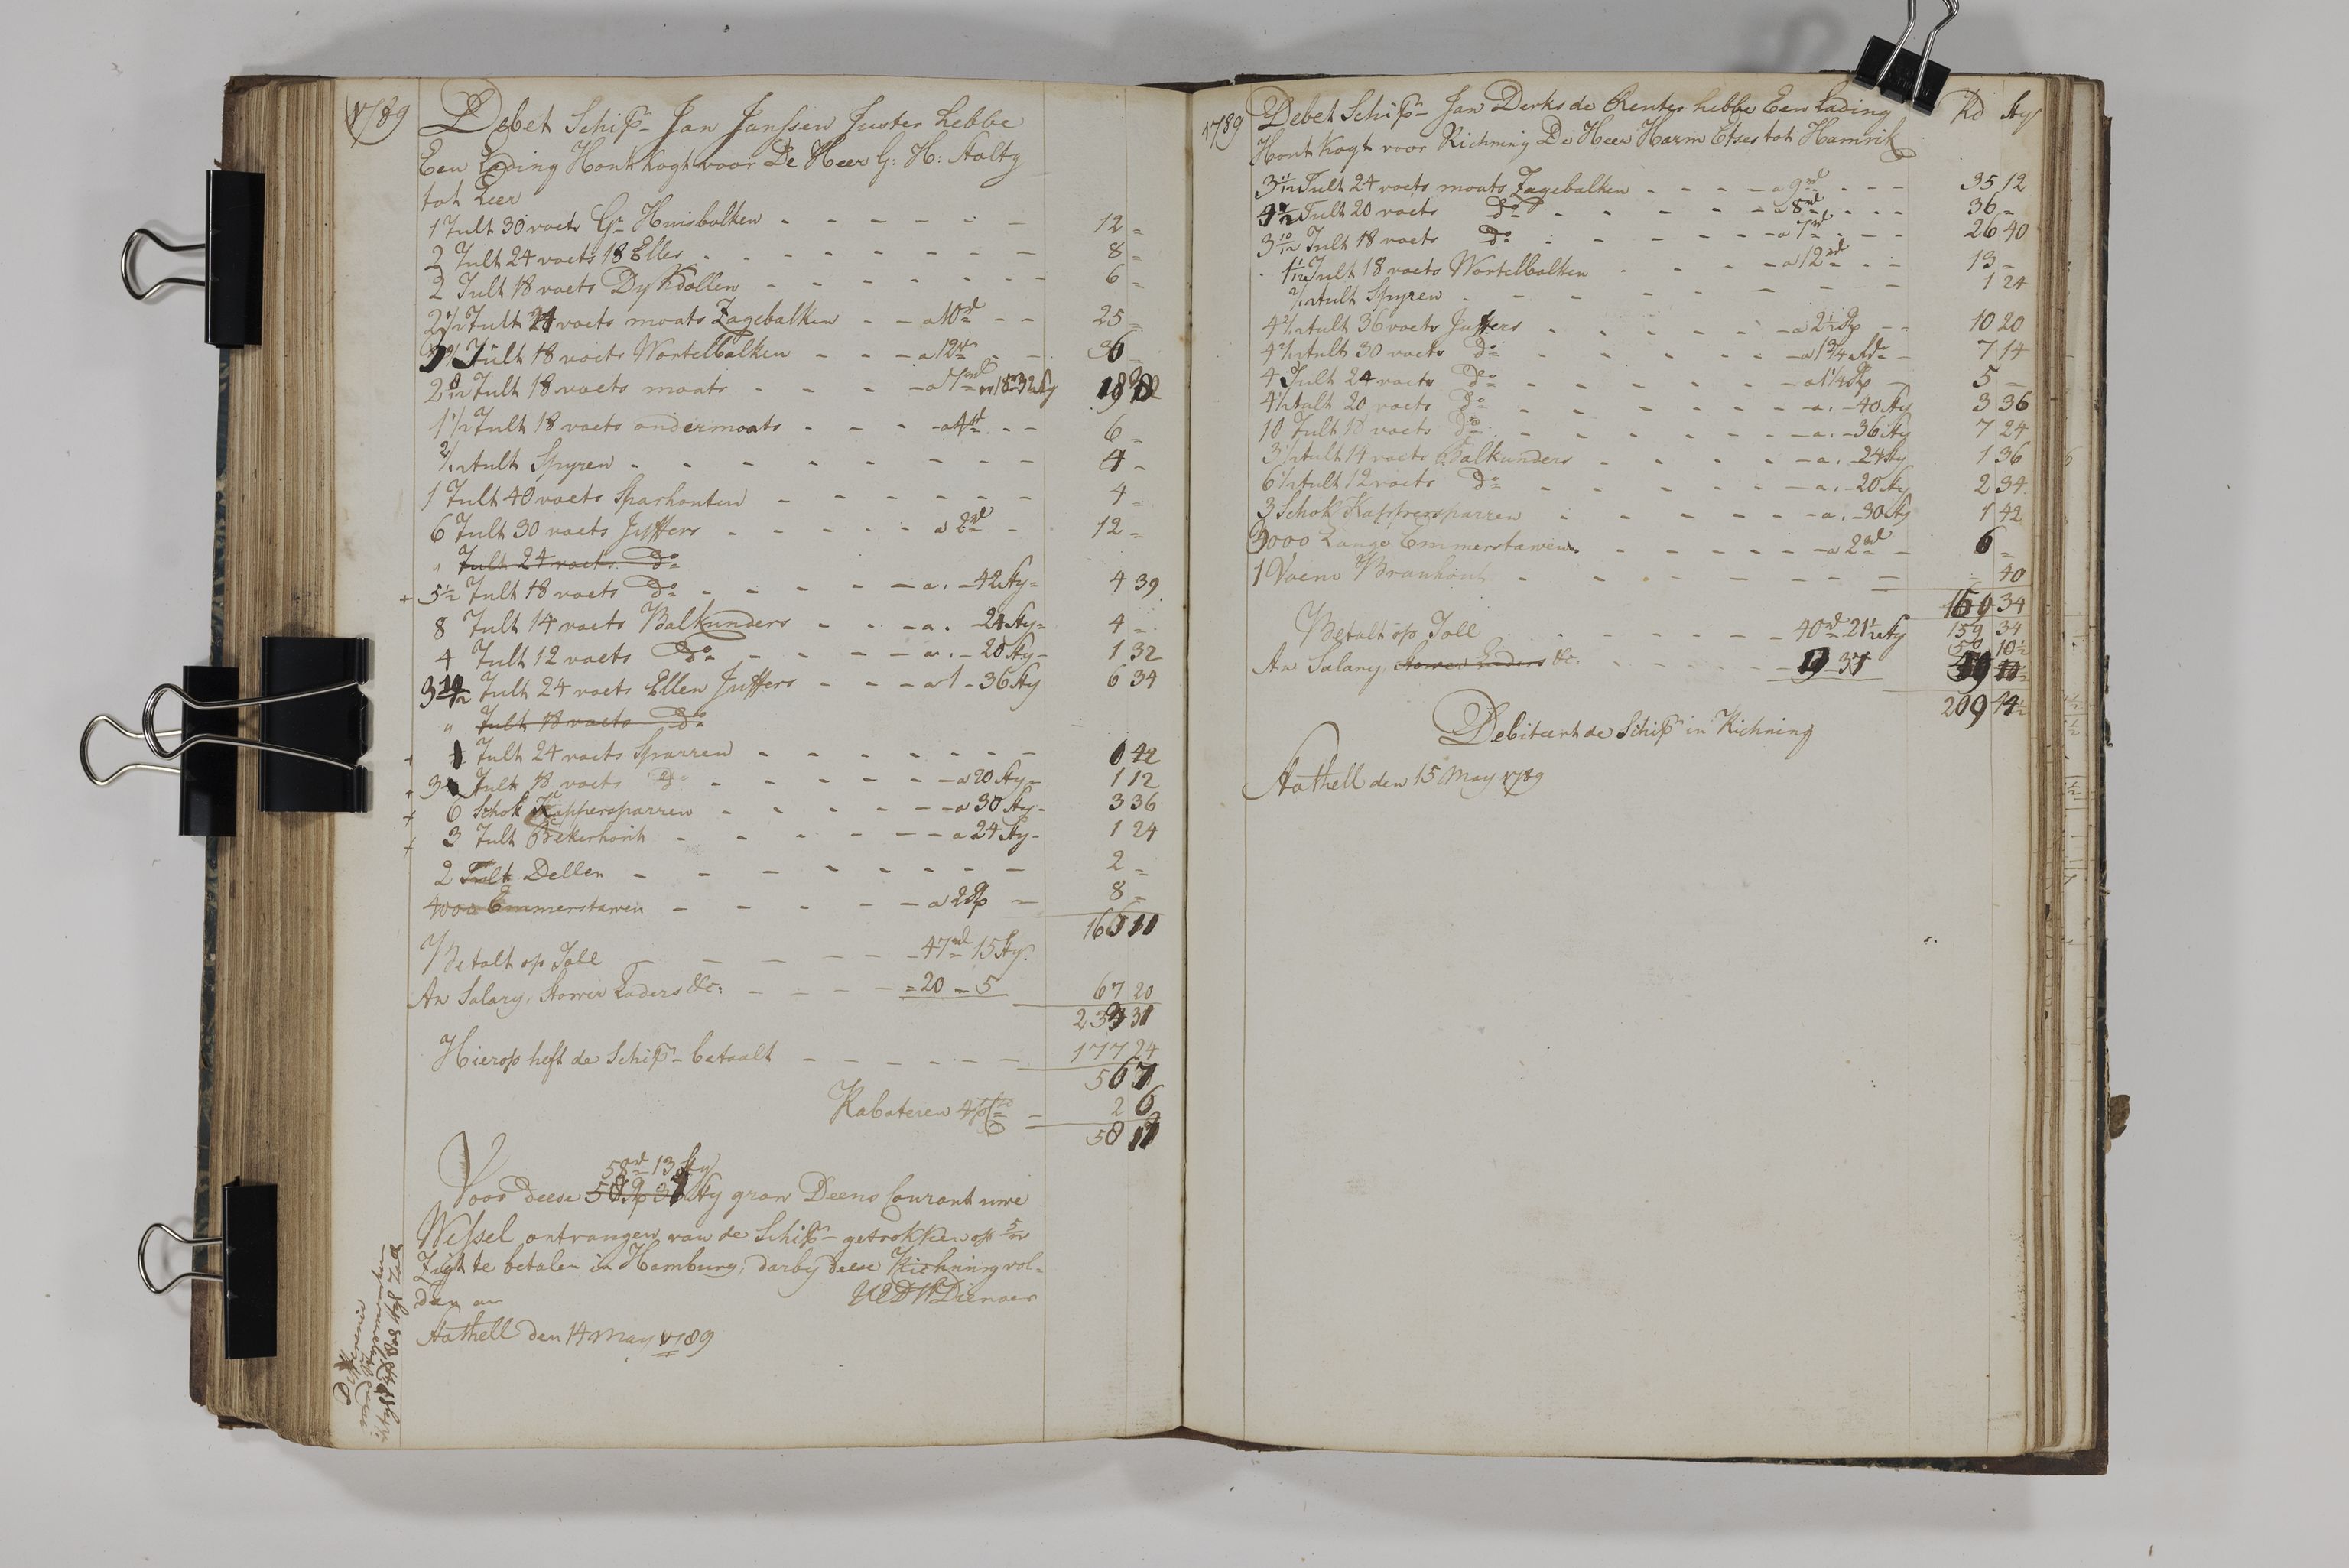 1789 Debet Schipr Jan Janssen Juster hebbe
Een Lading Hont kogt voor De Heer G: H: Holtz
tot Leer
1 Tult 30 voets Gr Huisbalken - - - - - - 12 =
2 Tult 24 voets 18 Elles - - - - - - - - 8 =
2 Tult 18 voets Dykdollen - - - - - - - 6 =
2 1/2 Tult 24 voets moats Zagebalken - - a 10rd - - 25 =
Tult 18 voets Wortelbalken - - - a 12rd - - 36 =
2 8/12 Tult 18 voets moats - - - - a 7rd
1 1/2 Tult 18 voets ondermoats - - - - a 4rd - - 6 =
2/12 Tult Spyren - - - - - - - - 4 -
1 Tult 40 voets Sparhonten - - - - - - 4 =
6 Tult 30 voets Juffers - - - - - a 2rd - 12 =
" Tult 24 voets Do
+ 5 1/2 Tult 18 voets Do - - - - - a . - 42 Sty = 4 39
8 Tult 14 voets Balkunders - - - a . - 24 Sty = 4 -
4 Tult 12 voets Do - - - - - a . - 20 Sty - 1 32
3 10/12 Tult 24 voets Ellen Juffers - - - a 1 - 36 Sty 6 34
" Tult 18 voets Do
+ 1 Tult 24 voets Sparren - - - - - - - 0 42
+ 3 Tult 18 voets Do - - - - - a 20 Sty - 1 12
+ 6 Schok Kappersparren - - - - - a 30 Sty - 3 36
+ 3 Tult Bekerhont - - - - - a 24 Sty - 1 24
2 Tult Dellen - - - - - - - - 2 =
4000 Emmerstawen - - - - - a 2 Rp - 8 -
166 11
Betalt op Toll - - - - - - 47rd 15 Sty
An Salary, Stower Laders &c: - - - - = 20 - 5 67 20
233 31
Hierop heft de Schipr betaalt - - - - - - 177 24
56 7
Rabateren 4 p Co = 2 6
58 13
58rd 13 Sty
Voor deese Sty grow Deens Courant uwe
Wissel ontvangen van de Schipr getrokken op
Zight te betalen in Hamburg, darby deese Richning vol-
dan an UEDWDienaer
Stathell den 14 May 1789
1789 Debet Schipr Jan Derks de Rentes hebbe Een Lading Rd Sty
Hont kogt voor Richning De Heer Harm Etses tot Hamrik
3 11/12 Tult 24 voets moats Zagebalken - - - - a 9rd - - - 35 12
4 1/2 Tult 20 voets Do - - - - - a 8rd - - - 36 -
3 10/12 Tult 18 voets Do - - - - - a 7rd - - - 26 40
1 1/12 Tult 18 voets Wortelbalken - - - - a 12rd - - 13 -
2/12 Tult Spyren - - - - - - - - - 1 24
4 2/12 Tult 36 voets Juffers - - - - - a 2 1/2 Rp - - 10 20
4 2/12 Tult 30 voets Do - - - - - a 1 3/4 Rdr - 7 14
4 Tult 24 voets Do - - - - - a 1 1/4 Rp - 5 -
4 1/2 Tult 20 voets Do - - - - - a . - 40 Sty 3 36
10 Tult 18 voets Do - - - - - a . - 36 Sty 7 24
3 1/2 Tult 14 voets Balkunders - - - - - a . - 24 Sty 1 36
6 1/2 Tult 12 voets Do - - - - - a . - 20 Sty 2 34
3 Schok Kappersparren - - - - - a . - 30 Sty 1 42
3000 Lange Emmerstawen - - - - - a 2rd - 6 =
1 Vaem Branhout - - - - - - - - = 40
159 34
Betalt op Toll - - - - - - 40rd 21 1/2 Sty 159 34
50 10 1/2
An Salary, Stower Laders &c. - - - - - 9 - 37
209 44 1/2
Debiteert de Schipr in Richning
Stathell den 15 May 1789